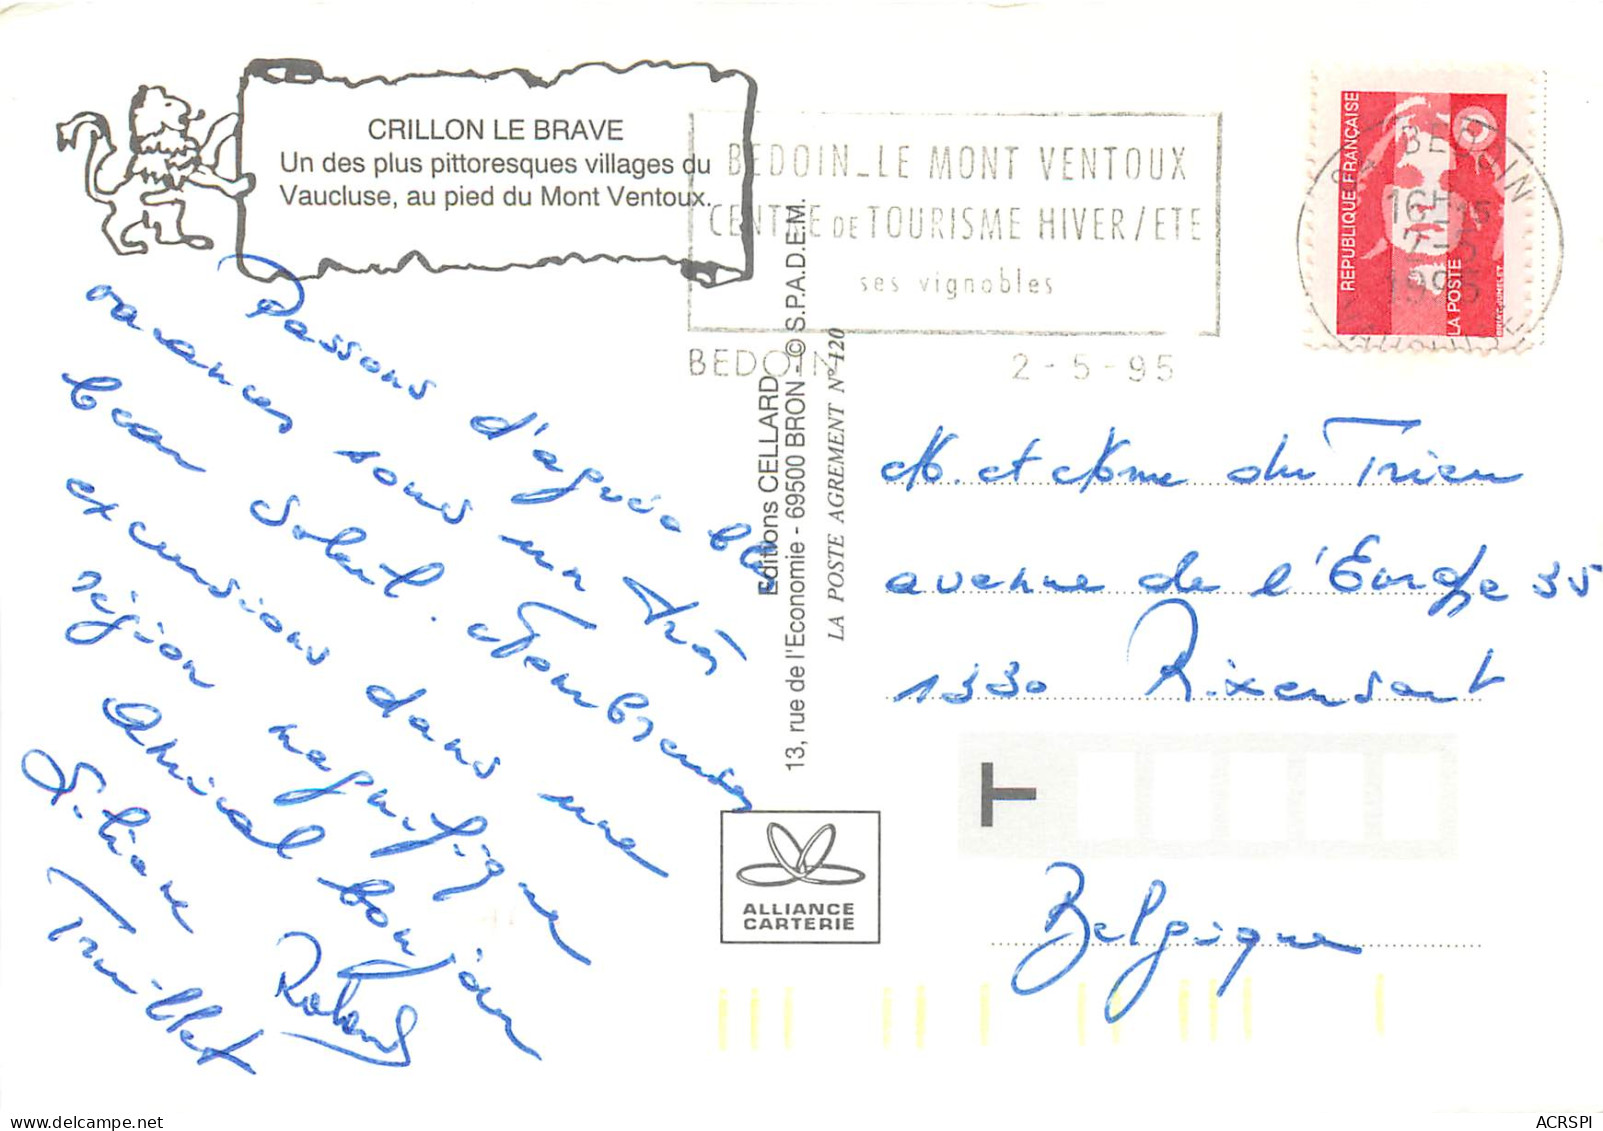 CRILLON LE BRAVE
Un des plus pittoresques villages du
Vaucluse, au pied du Mont Ventoux.
BEDOIN_LE MONT VENTOUX
CENTRE DE TOURISME HIVER/ETE
ses vignobles
BEDOIN
2-5-95
BEDOIN
16H15
2-5
1995
REPUBLIQUE FRANÇAISE
LA POSTE
Passons d'agréables
vacances sous un très
beau soleil. Nombreuses
excursions dans une
région magnifique
Amical bonjour
Liliane Roland
Truillet
Editions CELLARD
13, rue de l'Economie - 69500 BRON - © S.P.A.D.E.M.
LA POSTE AGREMENT N° 120
M. et Mme du Trieu
avenue de l'Europe 35
1330 Rixensart
Belgique
T
ALLIANCE
CARTERIE
ACRSPI